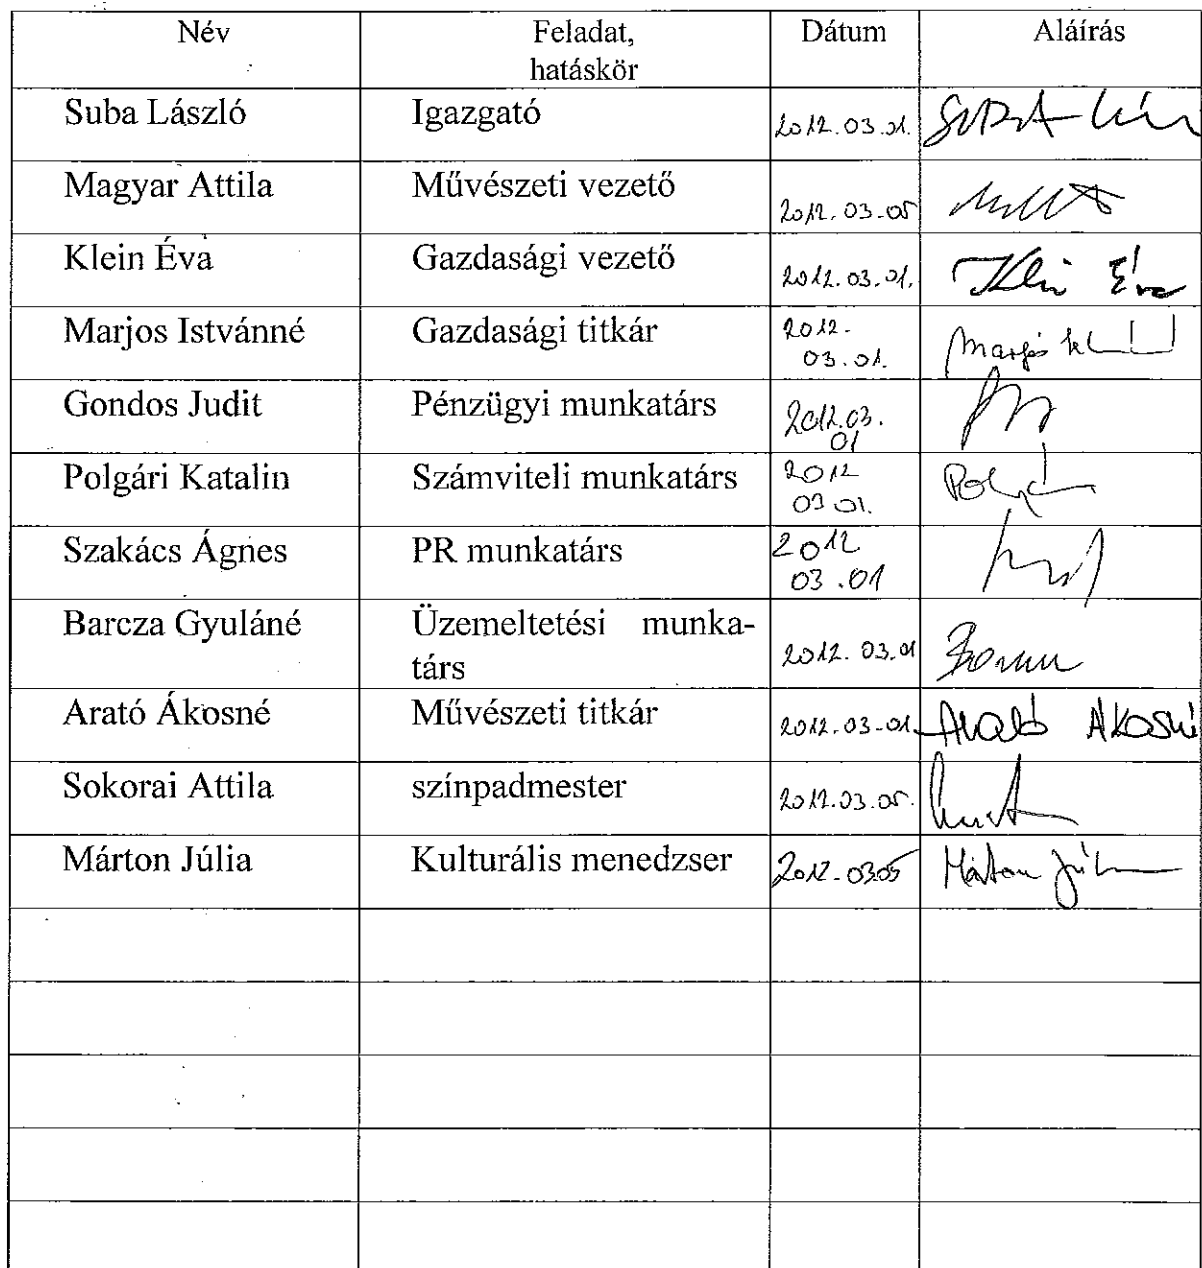 Név Feladat, Dátum Aláírás
hatáskör
Suba László Igazgató 2012.03.01.
Magyar Attila Művészeti vezető 2012.03.05
Klein Éva Gazdasági vezető 2012.03.01. Klein Éva
Marjos Istvánné Gazdasági titkár 2012.
03.01.
Gondos Judit Pénzügyi munkatárs 2012.03.
01
Polgári Katalin Számviteli munkatárs 2012
03 01.
Szakács Ágnes PR munkatárs 2012
03.01
Barcza Gyuláné Üzemeltetési munka-
társ 2012.03.01
Arató Ákosné Művészeti titkár 2012.03.01. Arató Ákosné
Sokorai Attila színpadmester 2012.03.05.
Márton Júlia Kulturális menedzser 2012.0305 Márton Júlia